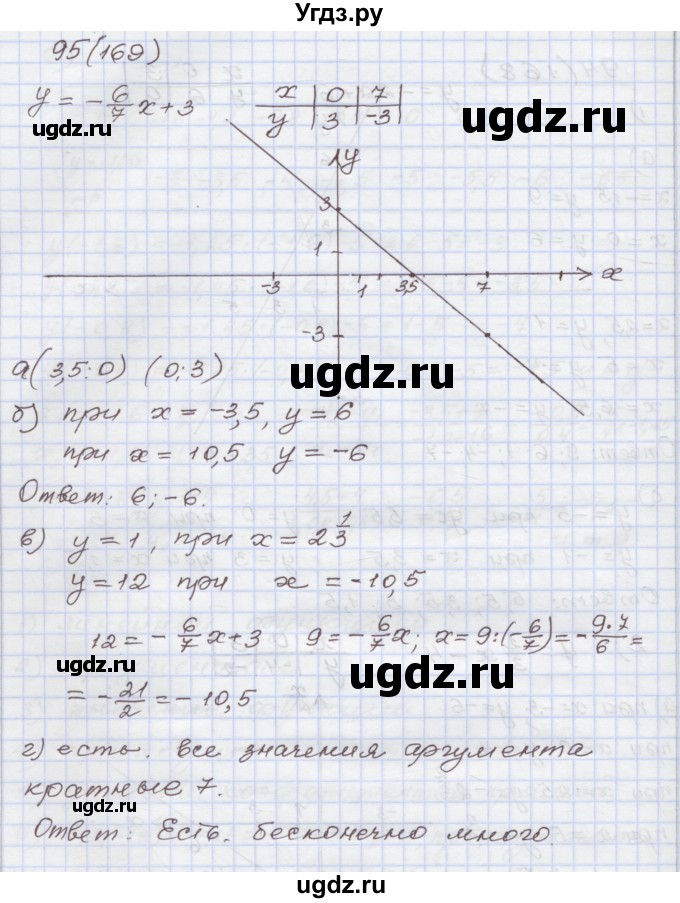 Угдз.ру
95(169)
y = -6/7 x + 3
x | 0 | 7 |
y | 3 | -3 |
угдз.ru
угдз.ru
y
3
1
-3 1 3,5 7 x
-3
а(3,5:0) (0;3)
угдз.ru
б) при x = -3,5, y = 6
при x = 10,5 y = -6
Ответ: 6; -6.
в) y = 1, при x = 2 1/3
y = 12 при x = -10,5
12 = -6/7 x + 3 9 = -6/7 x; x = 9:(-6/7) = -9·7/6 =
угдз.ru
= -21/2 = -10,5
г) есть. все значения аргумента
кратные 7.
угдз.ru
угдз.ru
Ответ: Есть. бесконечно много.
угдз.ru